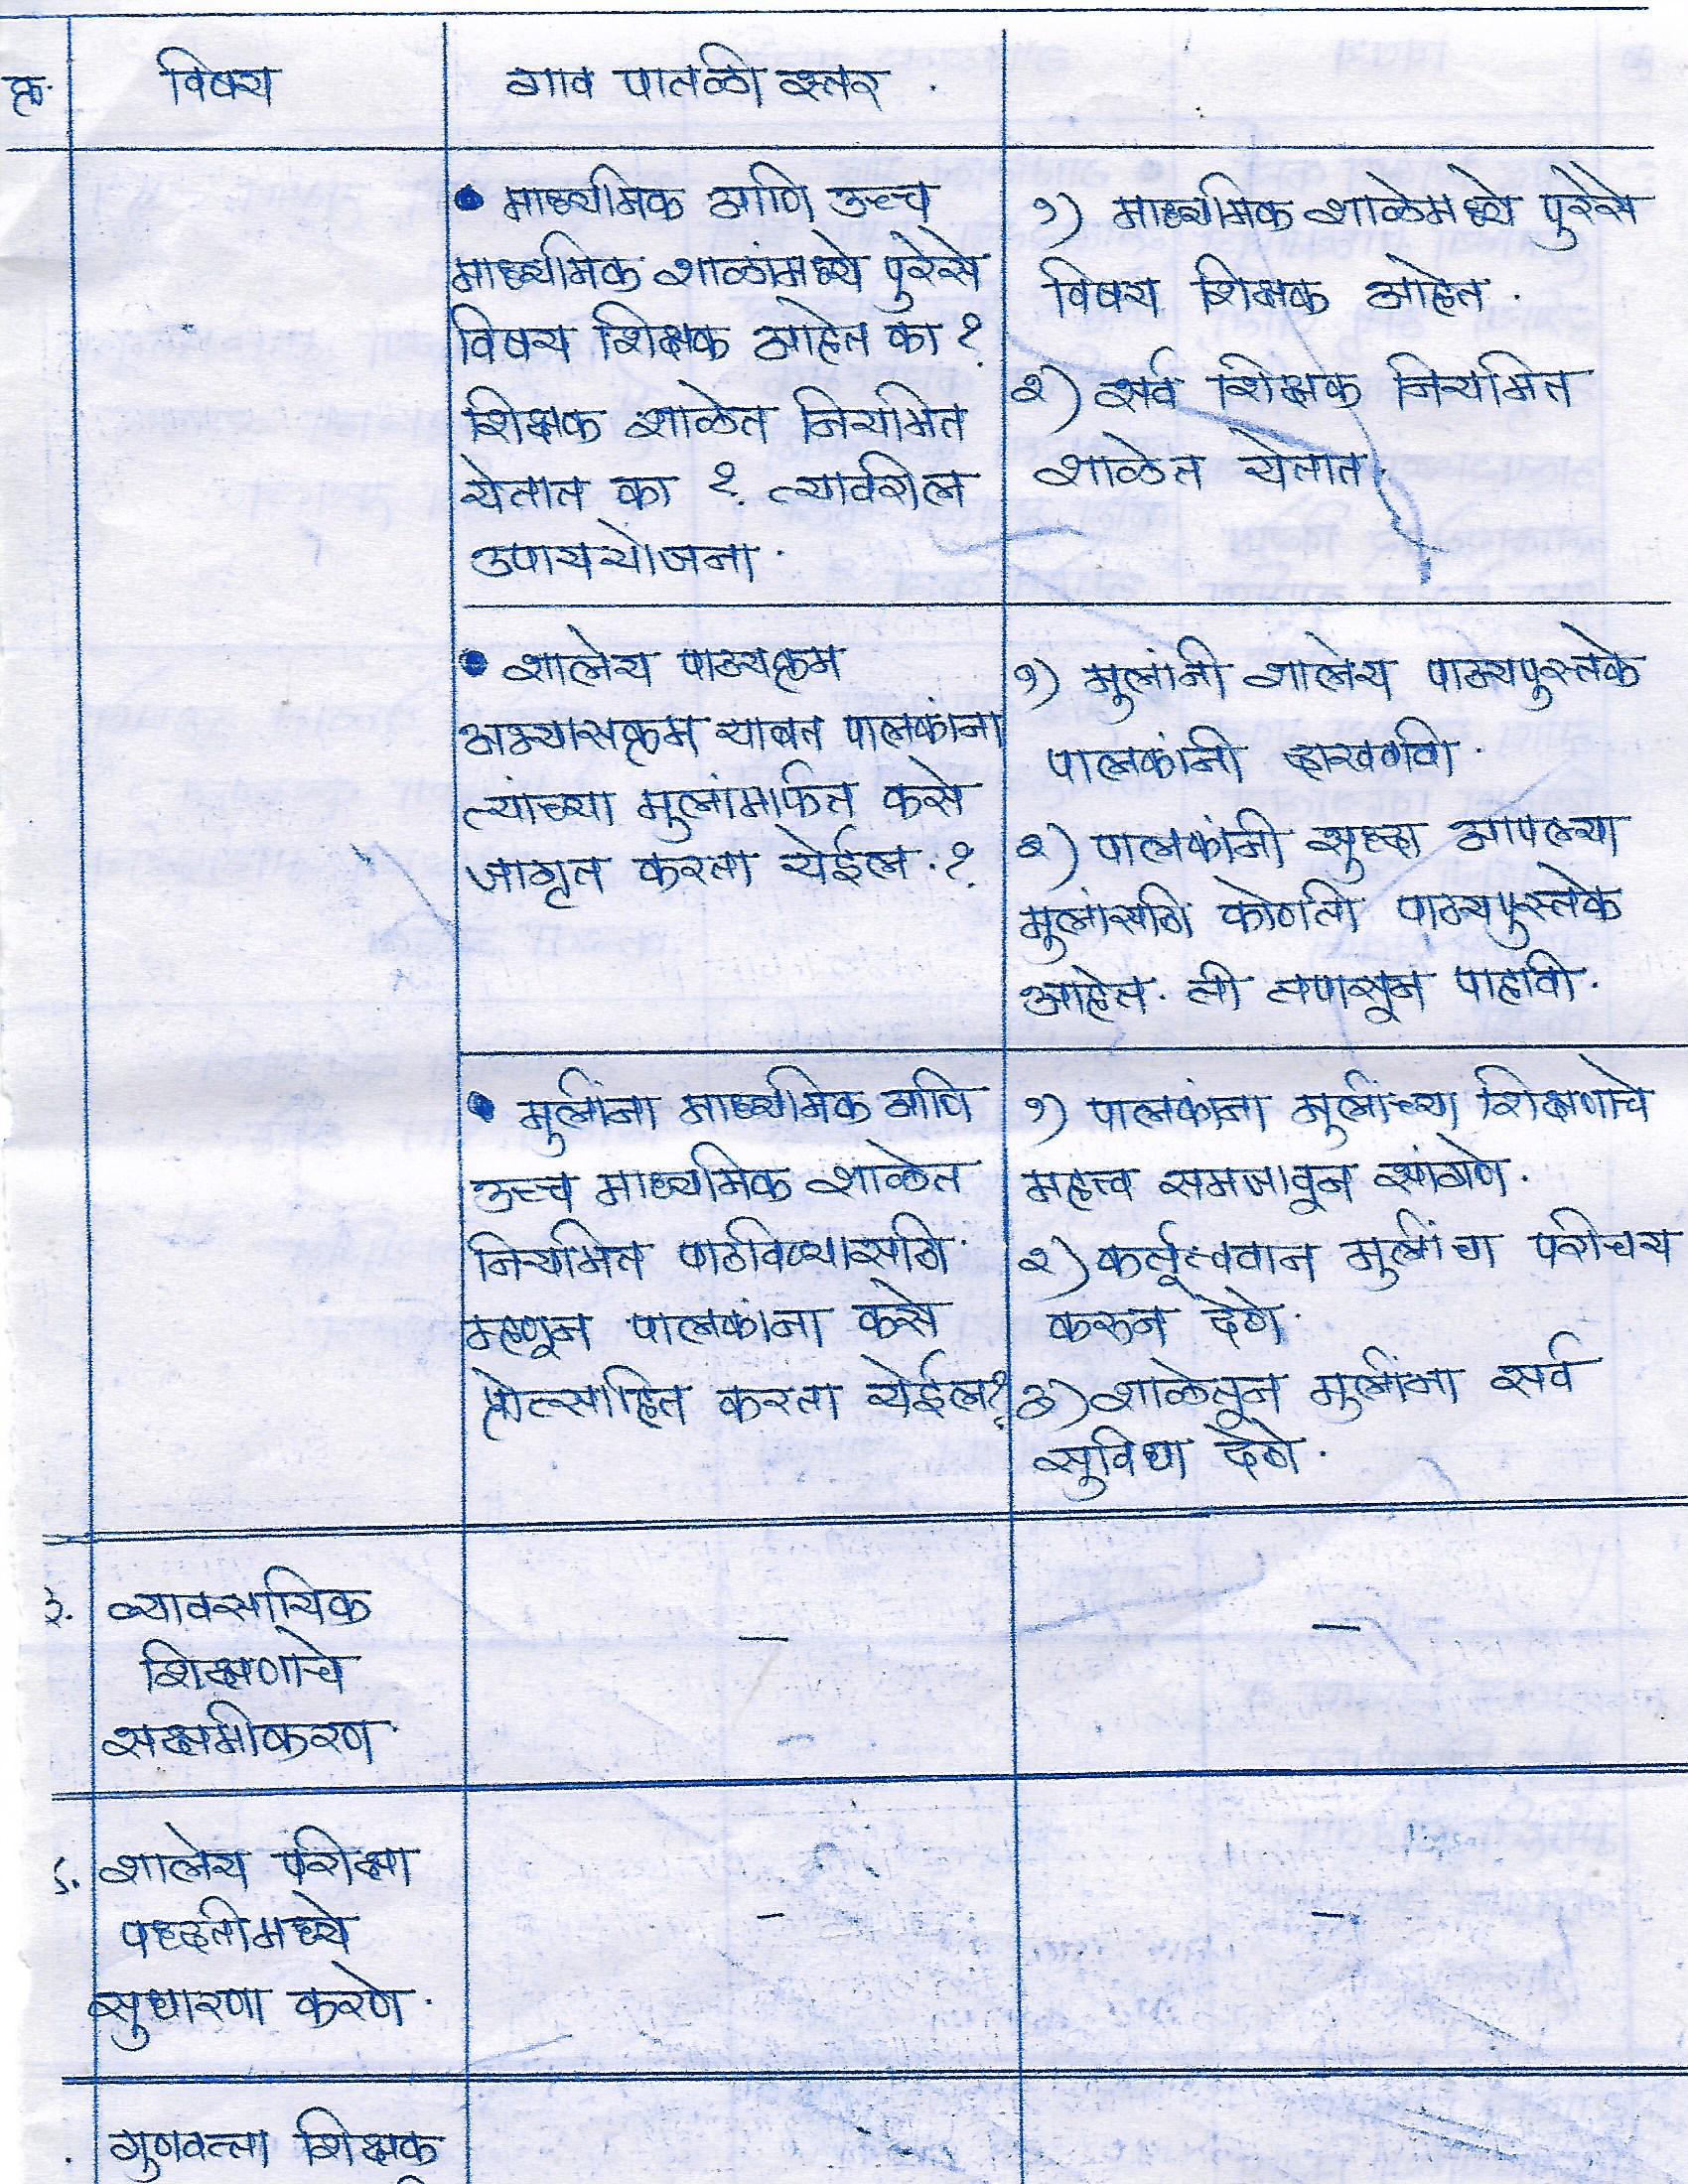 क्र. विषय गाव पातळी स्तर.
• माध्यमिक आणि उच्च
माध्यमिक शाळांमध्ये पुरेसे
विषय शिक्षक आहेत का ?
शिक्षक शाळेत नियमित
येतात का ? त्यावरील
उपाययोजना.
१) माध्यमिक शाळेमध्ये पुरेसे
विषय शिक्षक आहेत.
२) सर्व शिक्षक नियमित
शाळेत येतात.
• शालेय पाठ्यक्रम
अभ्यासक्रम याबत पालकांना
त्यांच्या मुलांमार्फत कसे
जागृत करता येईल.?
१) मुलांनी शालेय पाठ्यपुस्तके
पालकांनी दाखवावी.
२) पालकांनी सुध्दा आपल्या
मुलांसाठी कोणती पाठ्यपुस्तके
आहेत. ती तपासून पाहावी.
• मुलींना माध्यमिक आणि
उच्च माध्यमिक शाळेत
नियमित पाठविण्यासाठी
म्हणून पालकांना कसे
प्रोत्साहित करता येईल?
१) पालकांना मुलींच्या शिक्षणाचे
महत्त्व समजावून सांगणे.
२) कर्तृत्ववान मुलींचा परीचय
करून देणे.
३) शाळेतून मुलींना सर्व
सुविधा देणे.
व्यावसायिक
शिक्षणाचे
सक्षमीकरण.
शालेय परीक्षा
पध्दतीमध्ये
सुधारणा करणे.
गुणवत्ता शिक्षक